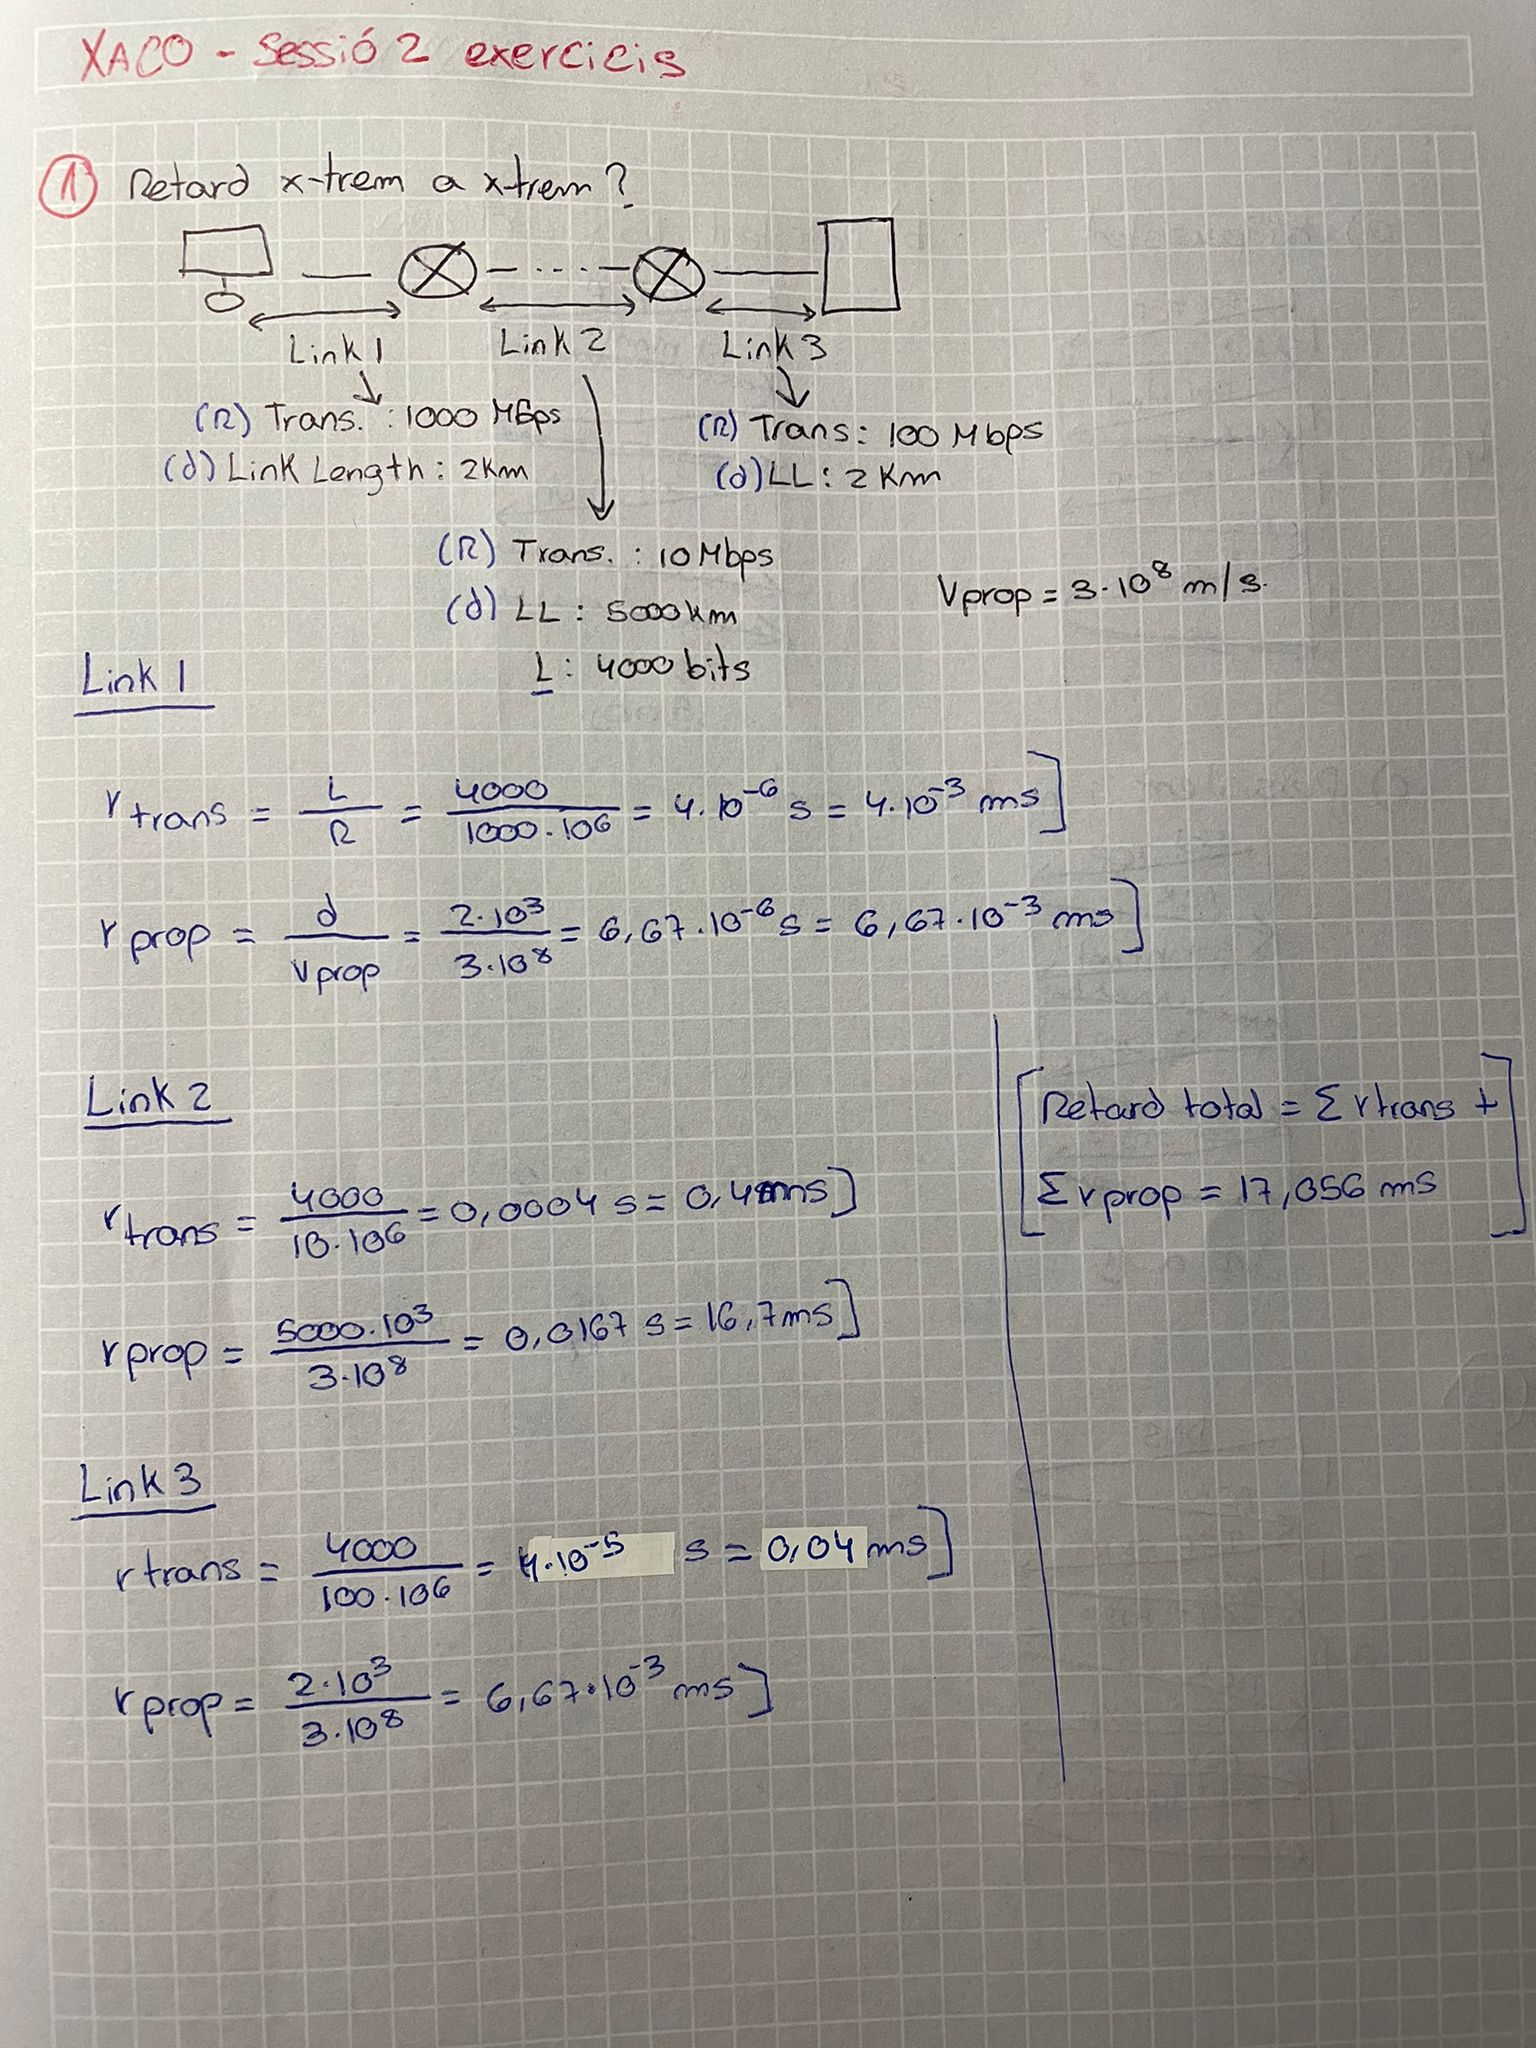 XACO - Sessió 2 exercicis
1 Retard x-trem a xtrem?
Link 1 Link 2 Link 3
(R) Trans. : 1000 Mbps
(d) Link Length : 2Km
(R) Trans : 100 Mbps
(d) LL : 2 Km
(R) Trans. : 10 Mbps
(d) LL : 5000km
L : 4000 bits
Vprop = 3·10⁸ m/s.
Link 1
rtrans = L/R = 4000/1000·10⁶ = 4·10⁻⁶ s = 4·10⁻³ ms]
rprop = d/vprop = 2·10³/3·10⁸ = 6,67·10⁻⁶ s = 6,67·10⁻³ ms]
Link 2
rtrans = 4000/10·10⁶ = 0,0004 s = 0,4ms]
rprop = 5000·10³/3·10⁸ = 0,0167 s = 16,7ms]
Link 3
rtrans = 4000/100·10⁶ = 4·10⁻⁵ s = 0,04 ms]
rprop = 2·10³/3·10⁸ = 6,67·10⁻³ ms]
[Retard total = Σ rtrans +
Σ rprop = 17,056 ms]